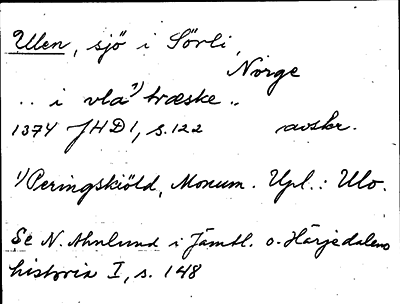 Ulen, sjö i Sörli,
Norge
.. i vla¹⁾ træske ..
1374 JHD 1, s. 122 avskr.
¹⁾ Peringskiöld, Monum. Upl.: Ulo.
Se N. Ahnlund i Jämtl. o. Härjedalens
historia I, s. 148